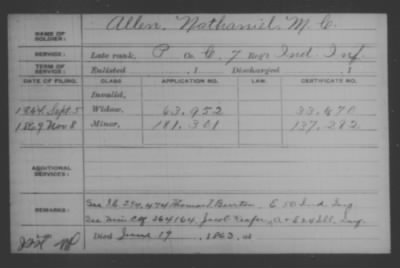 NAME OF SOLDIER: Allen, Nathaniel M. C.
SERVICE: Late rank, P Co. G, 7 Reg't Ind. Inf.
TERM OF SERVICE: Enlisted , 1 Discharged , 1
DATE OF FILING. CLASS APPLICATION NO. LAW. CERTIFICATE NO.
Invalid,
1864 Sept 5 Widow, 63.952 33.470
1869 Nov 8 Minor, 181.301 137.282
ADDITIONAL SERVICES:
REMARKS: See 274,474 Thomas Burton, E Ind. Inf.
See Min Ctf 264164 Jacob A + E 24 Ill. Inf.
Died June 19, 1863, at